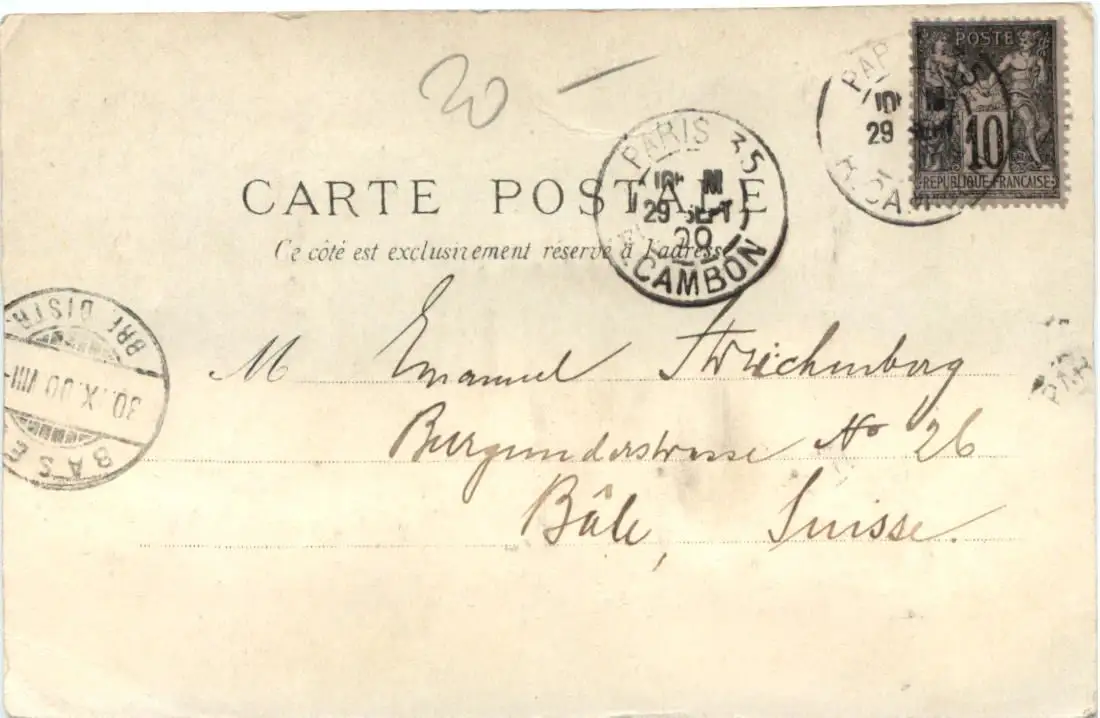 20 —
POSTE
10
REPUBLIQUE FRANÇAISE
29 SEPT
PARIS 35
29 SEPT
00
R. CAMBON
CARTE POSTALE
Ce côté est exclusivement réservé à l'adresse
BRF. DISTR.
30.IX.00 VIII-
BASEL
M Emanuel
Burgunderstrasse No 26
Bâle, Suisse.